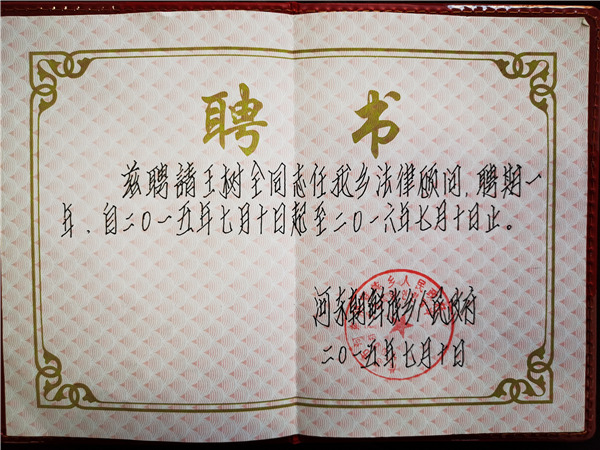 聘 书
兹聘請王树全同志任我乡法律顾问,聘期一
年、自二〇一五年七月十日起至二〇一六年七月十日止。
河东朝鲜族乡人民政府
二〇一五年七月十日